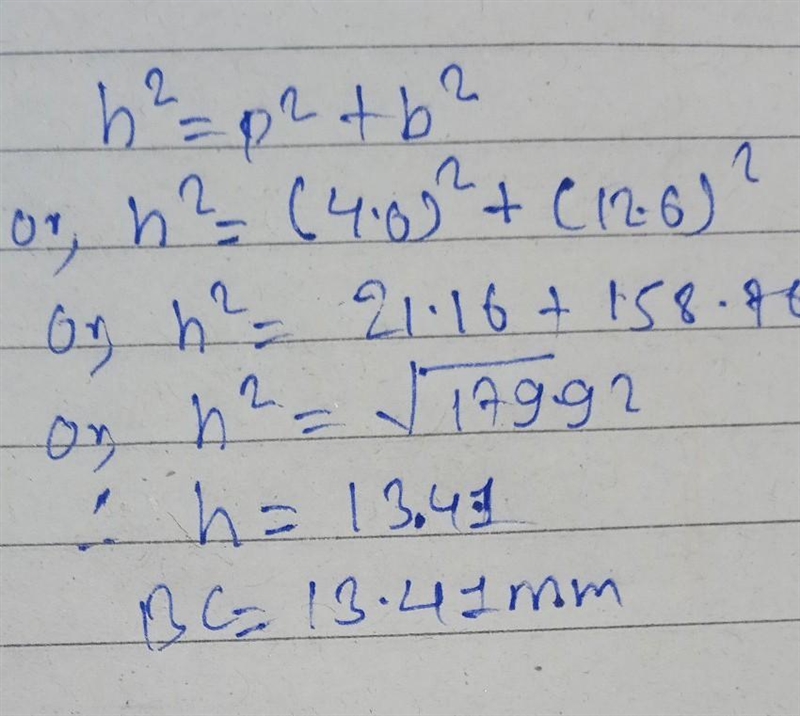 h² = p² + b²
or, h² = (4.6)² + (12.6)²
or, h² = 21.16 + 158.76
or, h² = √179.92
∴ h = 13.41
BC = 13.41mm